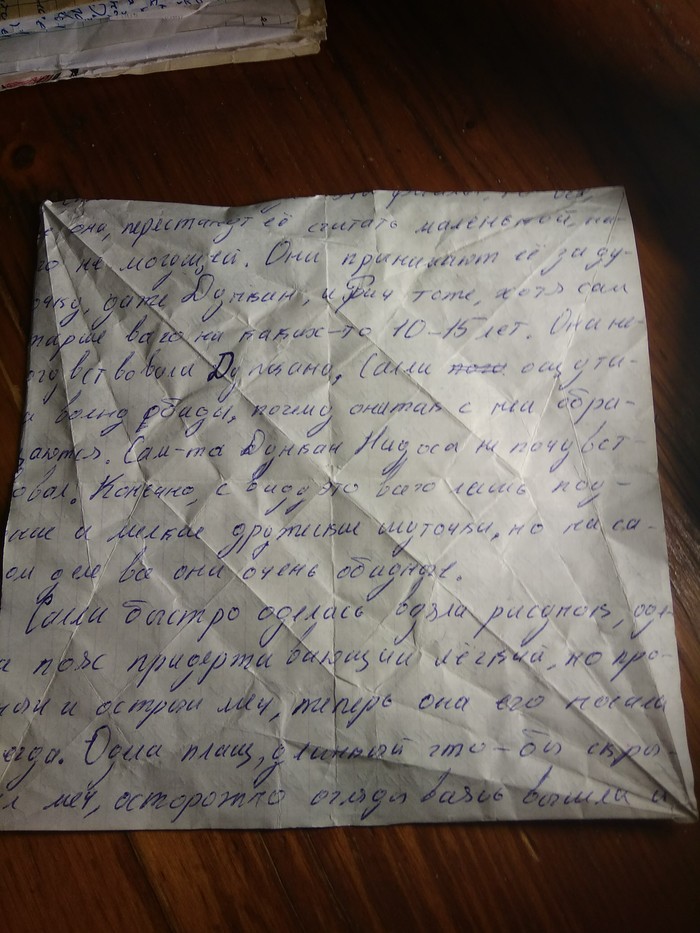 она, перестанут её считать маленькой, ни-
го не могощей. Они принимают её за ду-
очку, даже Дункан, и Рич тоже, хотя сам
тарше всего на каких-то 10-15 лет. Они не-
Дункана, Салли ощути-
волну обиды, почему они так с ней обра-
аются. Сам-то Дункан не почувст-
овал. Конечно, с виду это всего лишь поу-
ние и мелкие дружеские шуточки, но на са-
ом деле все они очень обидные.
Салли быстро оделась взяла рисунок, од-
а пояс придерживающий лёгкий, но про-
ный и острый меч, теперь она его носала
егда. Одела плащ, длинный что-бы скры-
л меч, осторожно оглядываясь вышла и